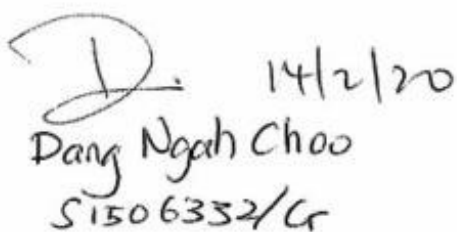 D. 14/2/20
Dang Ngah Choo
S1506332/G